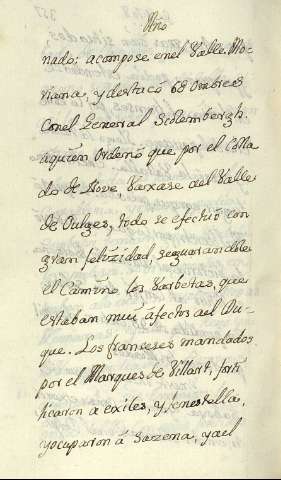 Año
nado; acompose enel Valle Mo-
riama, y destacó 68 Ombres
Conel General Scolembergh.
aquien Ordenó que por el Colla
do de Love, Vaxase ael Valle
de Oulges, todo se efectuó con
gran felizidad, segurandole
el Camino los Barbetas, que
estaban mui afectos ael Du-
que. Los franceses mandados
por el Marques de Villart, forti
ficaron a exiles, y fenestella,
y ocuparon á Sazena, y ael